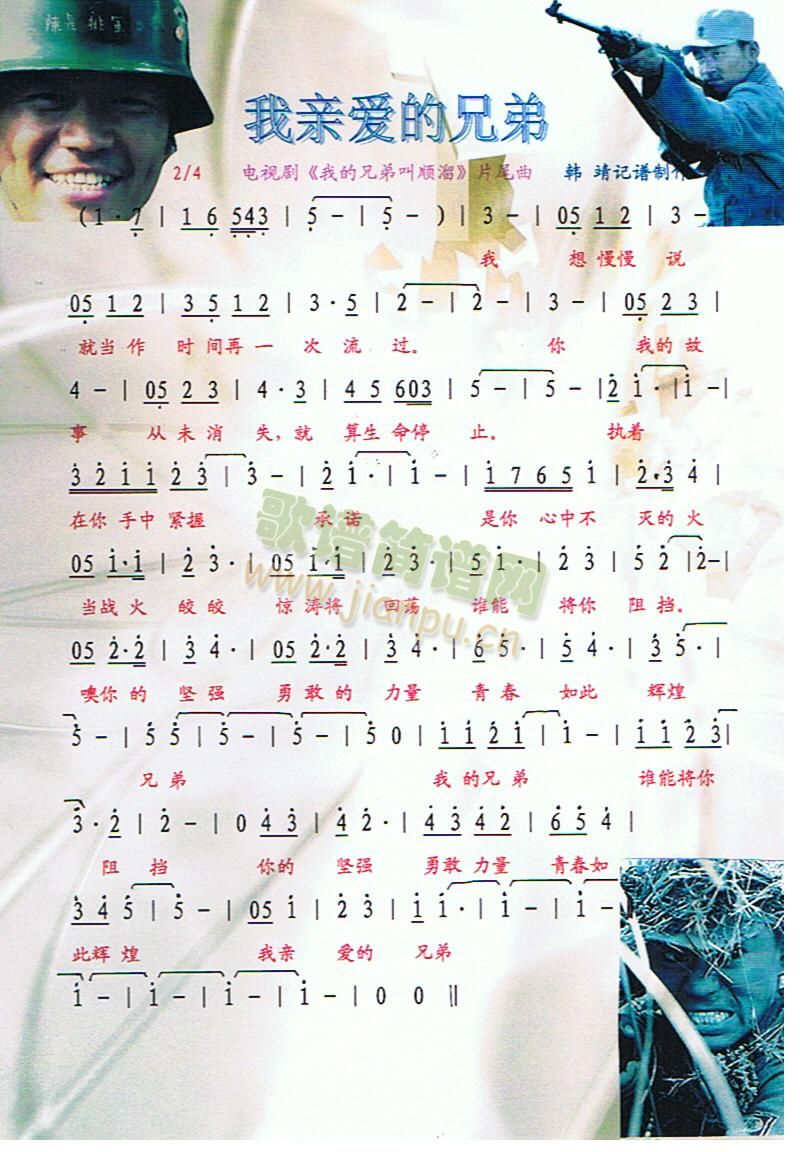 我亲爱的兄弟
2/4 电视剧《我的兄弟叫顺溜》片尾曲 韩 靖记谱制作
(1 · 7 | 1 6 543 | 5 - | 5 - ) | 3 - | 05 1 2 | 3 - |
我 想 慢慢 说
05 1 2 | 3 5 1 2 | 3 · 5 | 2 - | 2 - | 3 - | 05 2 3 |
就当 作 时 间再 一 次 流 过。 你 我的 故
4 - | 05 2 3 | 4 · 3 | 4 5 603 | 5 - | 5 - | 2 1 · | 1 - |
事 从 未 消 失，就 算生 命停 止。 执着
3 2 1 1 2 3 | 3 - | 2 1 · | 1 - | 1 7 6 5 1 | 2 · 3 4 |
在你 手中 紧握 承 诺 是你 心中不 灭的 火
05 1 · 1 | 2 3 · | 05 1 · 1 | 2 3 · | 5 1 · | 2 3 | 5 2 | 2 - |
当战 火 皎皎 惊 涛将 回荡 谁能 将你 阻挡。
05 2 · 2 | 3 4 · | 05 2 · 2 | 3 4 · | 6 5 · | 5 4 · | 3 5 · |
噢你 的 坚 强 勇 敢 的 力量 青春 如此 辉煌
5 - | 5 5 | 5 - | 5 - | 5 0 | 1 1 2 1 | 1 - | 1 1 2 3 |
兄 弟 我 的兄 弟 谁能将你
3 · 2 | 2 - | 0 4 3 | 4 2 · | 4 3 4 2 | 6 5 4 |
阻 挡 你的 坚强 勇敢 力量 青春如
3 4 5 | 5 - | 05 1 | 2 3 | 1 1 · | 1 - | 1 - |
此辉 煌 我亲 爱的 兄弟
1 - | 1 - | 1 - | 1 - | 0 0 ‖
歌谱简谱网
www.jianpu.cn